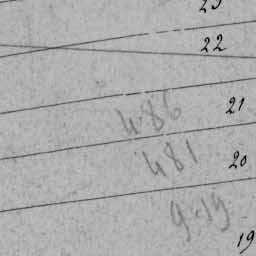 23
22
486
21
481
20
9.19
19